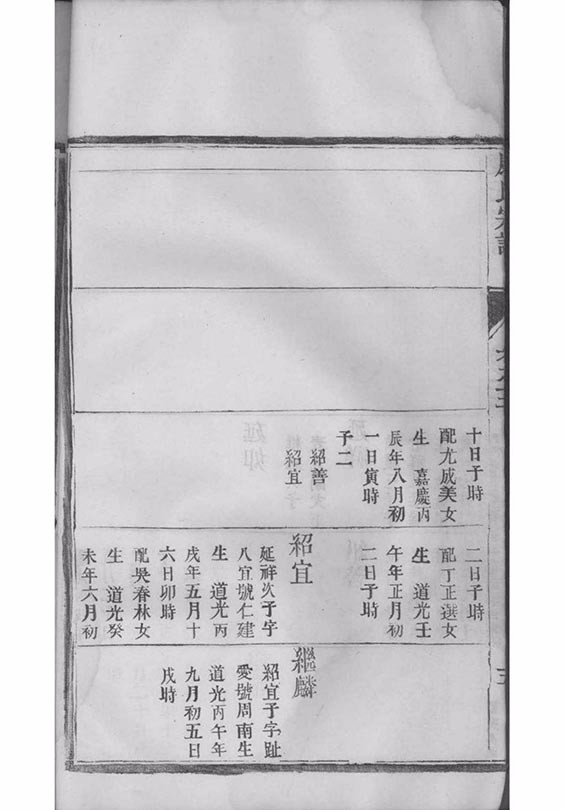 十日子時
配尤成美女
生 嘉慶丙
辰年八月初
一日寅時
子二
紹善
紹宜
二日子時
配丁正選女
生 道光壬
午年正月初
二日子時
紹宜
延祥次子字
八宜號仁建
生 道光丙
戌年五月十
六日卯時
配吳春林女
生 道光癸
未年六月初
繼麟
紹宜子字趾
愛號周南生
道光丙午年
九月初五日
戌時